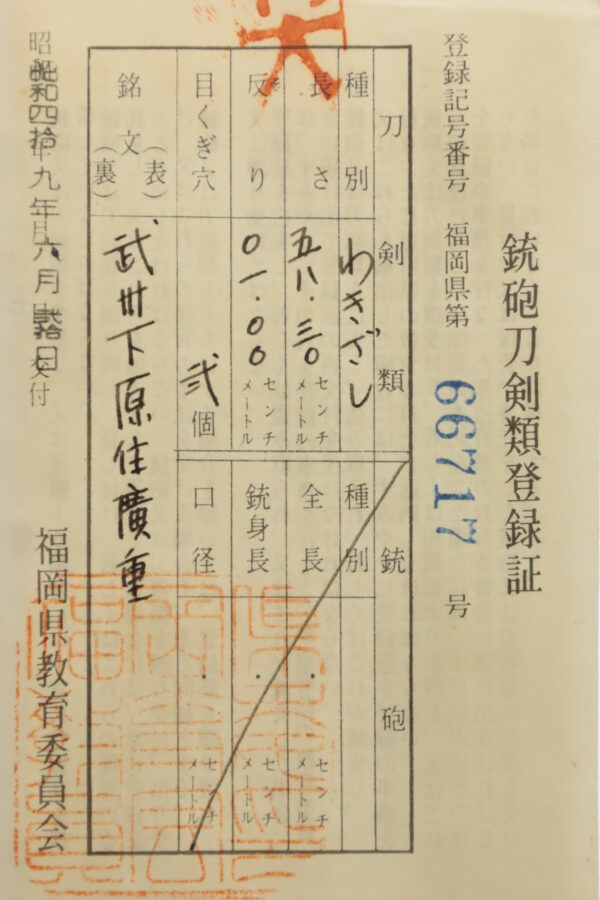 銃砲刀剣類登録証
登録記号番号 福岡県第 66717 号
刀剣類
種別 わきざし
長さ 五八.三〇 センチメートル
反り 〇一.〇〇 センチメートル
目くぎ穴 弐個
銘文（表）（裏） 武州下原住廣重
銃砲
種別
全長 ・ センチメートル
銃身長 ・ センチメートル
口径 ・ センチメートル
昭和四拾九年六月 日交付
福岡県教育委員会